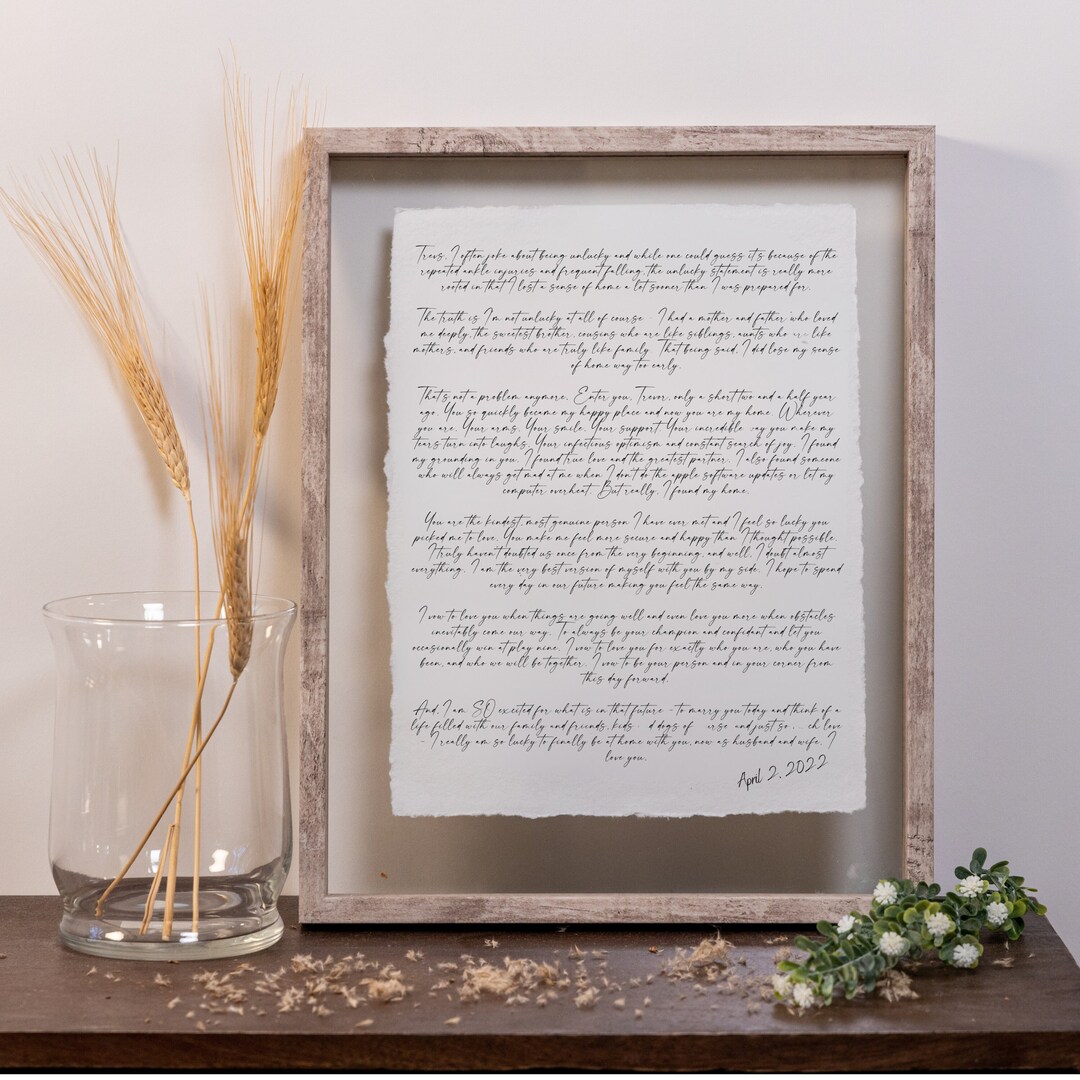 Trevs, I often joke about being unlucky and while one could guess it's because of the
repeated ankle injuries and frequent falling, the unlucky statement is really more
rooted in that I lost a sense of home a lot sooner than I was prepared for.
The truth is I'm not unlucky at all of course - I had a mother and father who loved
me deeply, the sweetest brother, cousins who are like siblings, aunts who like
mothers, and friends who are truly like family. That being said, I did lose my sense
of home way too early.
That's not a problem anymore. Enter you, Trevor, only a short two and a half year
ago. You so quickly became my happy place and now you are my home. Wherever
you are. Your arms. Your smile. Your support. Your incredible you make my
tears turn into laughs. Your infectious optimism and constant search of joy. I found
my grounding in you. I found true love and the greatest partner. I also found someone
who will always get mad at me when I don't do the apple software updates or let my
computer overheat. But really, I found my home.
You are the kindest, most genuine person I have ever met and I feel so lucky you
picked me to love. You make me feel more secure and happy than I thought possible.
I truly haven't doubted us once from the very beginning, and well, I doubt almost
everything. I am the very best version of myself with you by my side. I hope to spend
every day in our future making you feel the same way.
I vow to love you when things are going well and even love you more when obstacles
inevitably come our way. To always be your champion and confidant and let you
occasionally win at play nine. I vow to love you for exactly who you are, who you have
been, and who we will be together. I vow to be your person and in your corner from
this day forward.
And, I am SO excited for what is in that future - to marry you today and think of a
life filled with our family and friends, kids dogs of and just so love
- I really am so lucky to finally be at home with you, now as husband and wife. I
love you.
April 2, 2022